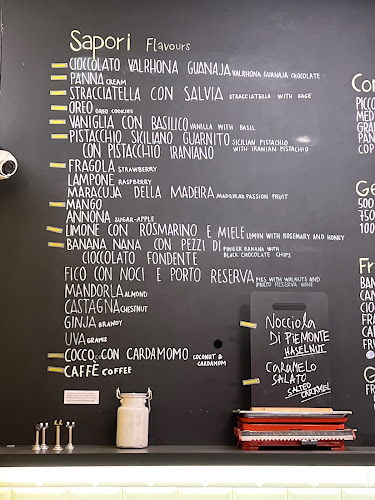 Sapori Flavours
CIOCCOLATO VALRHONA GUANAJA VALRHONA GUANAJA CHOCOLATE
PANNA CREAM
STRACCIATELLA CON SALVIA STRACCIATELLA WITH SAGE
OREO OREO COOKIES
VANIGLIA CON BASILICO VANILLA WITH BASIL
PISTACCHIO SICILIANO GUARNITO SICILIAN PISTACHIO
CON PISTACCHIO IRANIANO WITH IRANIAN PISTACHIO
FRAGOLA STRAWBERRY
LAMPONE RASPBERRY
MARACUJA DELLA MADEIRA MADEIRA'S PASSION FRUIT
MANGO
ANNONA SUGAR-APPLE
LIMONE CON ROSMARINO E MIELE LEMON WITH ROSEMARY AND HONEY
BANANA NANA CON PEZZI DI FINGER BANANA WITH
CIOCCOLATO FONDENTE BLACK CHOCOLATE CHIPS
FICO CON NOCI E PORTO RESERVA FIGS WITH WALNUTS AND
PORTO RESERVA WINE
MANDORLA ALMOND
CASTAGNA CHESTNUT
GINJA BRANDY
UVA GRAPES
COCCO CON CARDAMOMO COCONUT &
CARDAMOM
CAFFÈ COFFEE
Nocciola
Di PiEMONTE
HASELNUT
CARAMELO
SALATO
SALTED CARAMEL
Co
PICCO
MED
GRA
PAN
COP
Ge
500
750
100
Fr
BAN
CAN